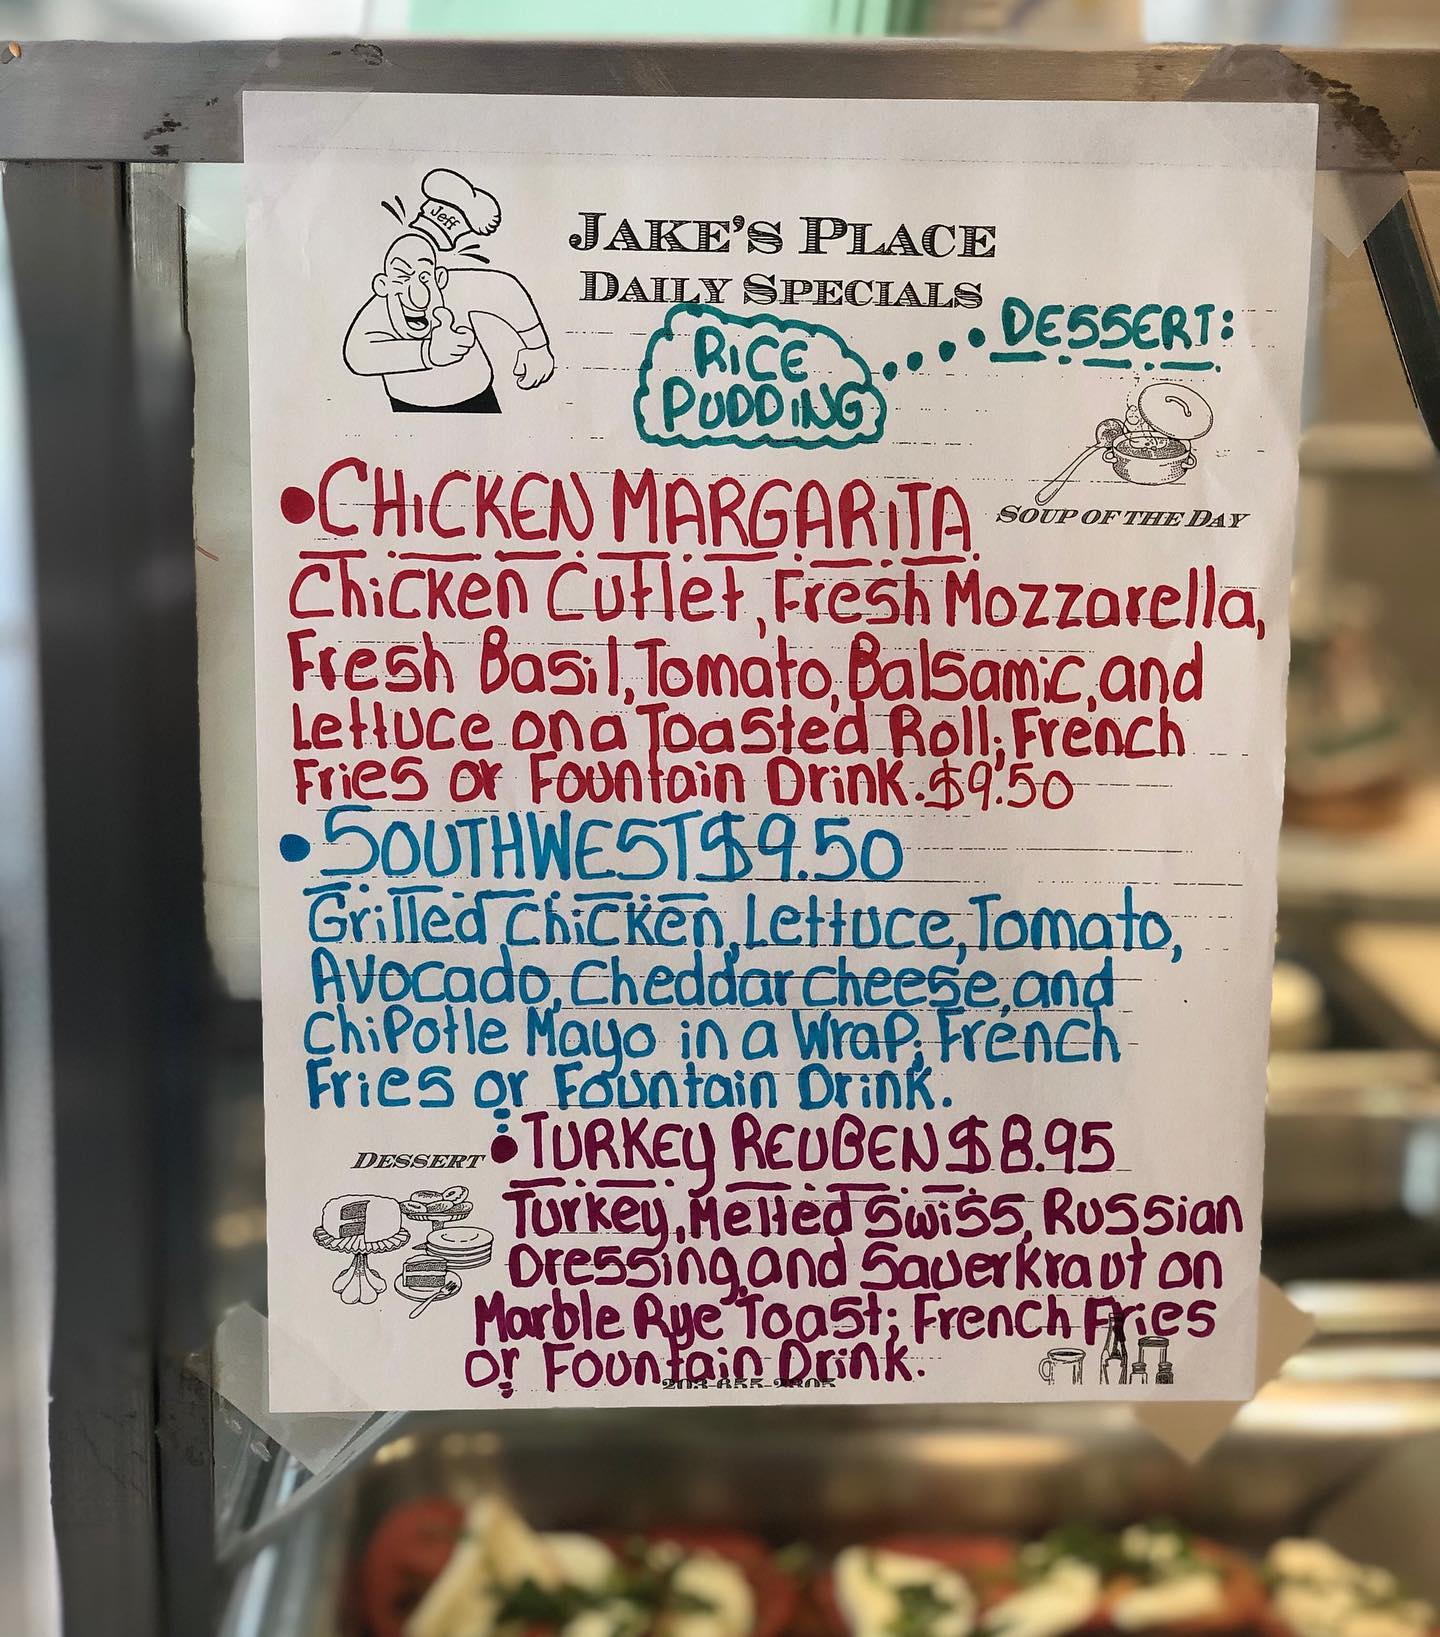 Jeff
JAKE'S PLACE
DAILY SPECIALS
DESSERT:
RICE
PUDDING
SOUP OF THE DAY
•CHICKEN MARGARITA
Chicken Cutlet, Fresh Mozzarella,
Fresh Basil, Tomato, Balsamic, and
Lettuce on a Toasted Roll; French
Fries or Fountain Drink. $9.50
•SOUTHWEST $9.50
Grilled Chicken, Lettuce, Tomato,
Avocado, Cheddar cheese, and
Chipotle Mayo in a Wrap; French
Fries or Fountain Drink.
DESSERT
•TURKEY REUBEN $8.95
Turkey, Melted Swiss, Russian
Dressing, and Sauerkraut on
Marble Rye Toast; French Fries
or Fountain Drink.